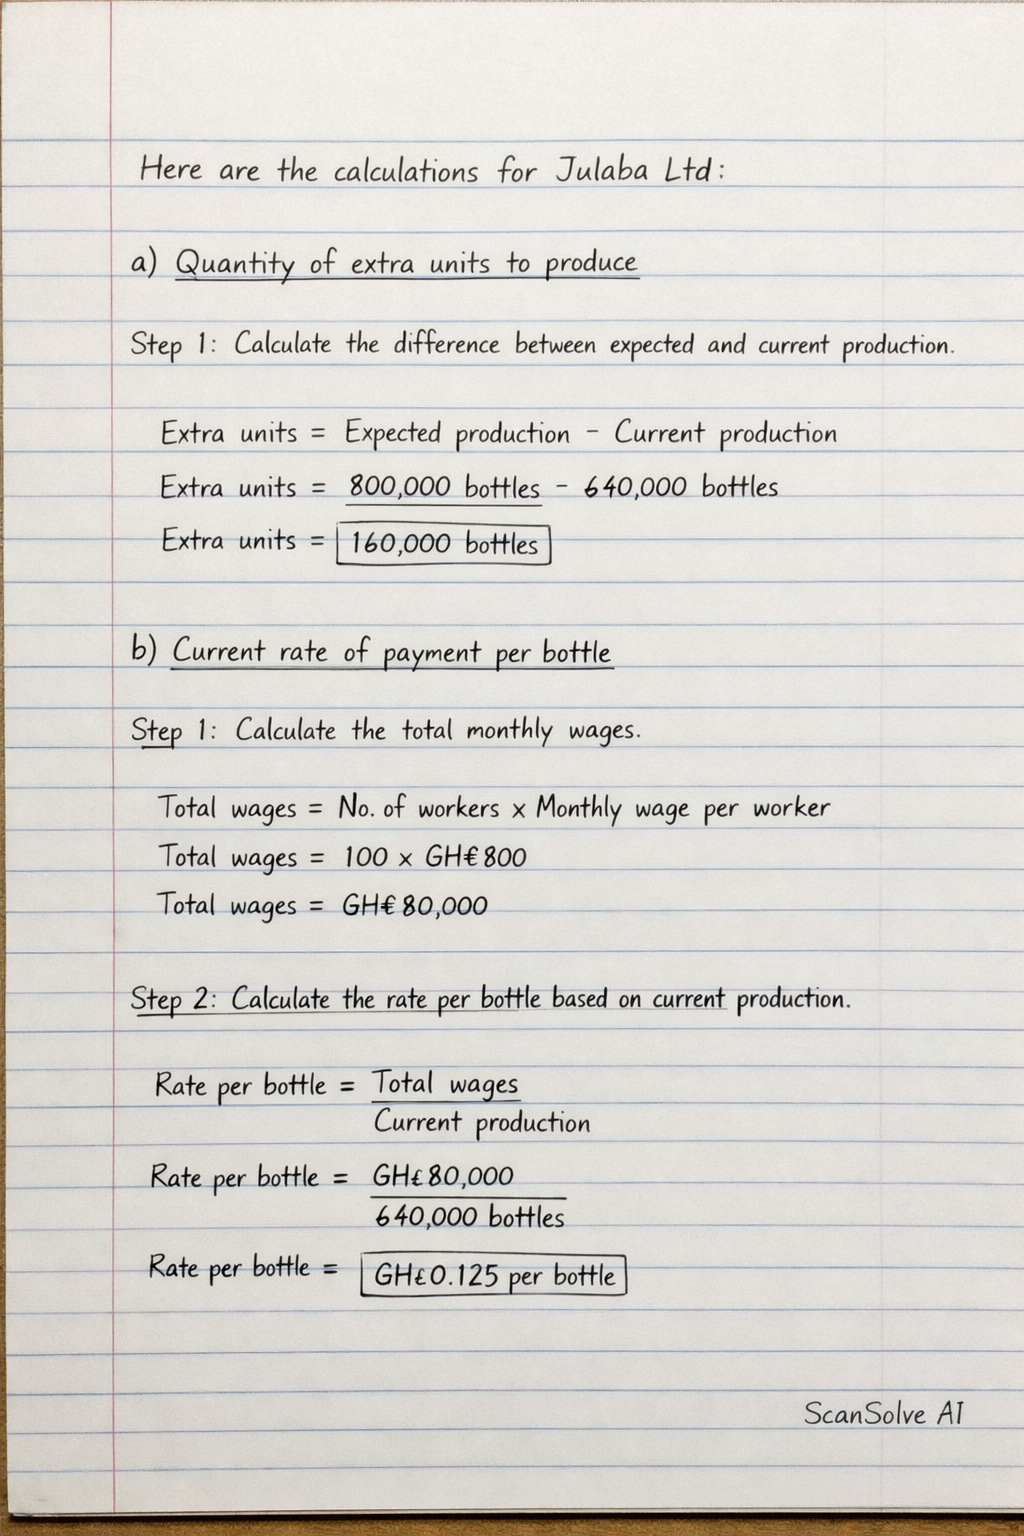 Here are the calculations for Julaba Ltd:
a) Quantity of extra units to produce
Step 1: Calculate the difference between expected and current production.
Extra units = Expected production - Current production
Extra units = 800,000 bottles - 640,000 bottles
Extra units = 160,000 bottles
b) Current rate of payment per bottle
Step 1: Calculate the total monthly wages.
Total wages = No. of workers x Monthly wage per worker
Total wages = 100 x GH€800
Total wages = GH€80,000
Step 2: Calculate the rate per bottle based on current production.
Rate per bottle = Total wages
Current production
Rate per bottle = GH£80,000
640,000 bottles
Rate per bottle = GH£0.125 per bottle
ScanSolve AI